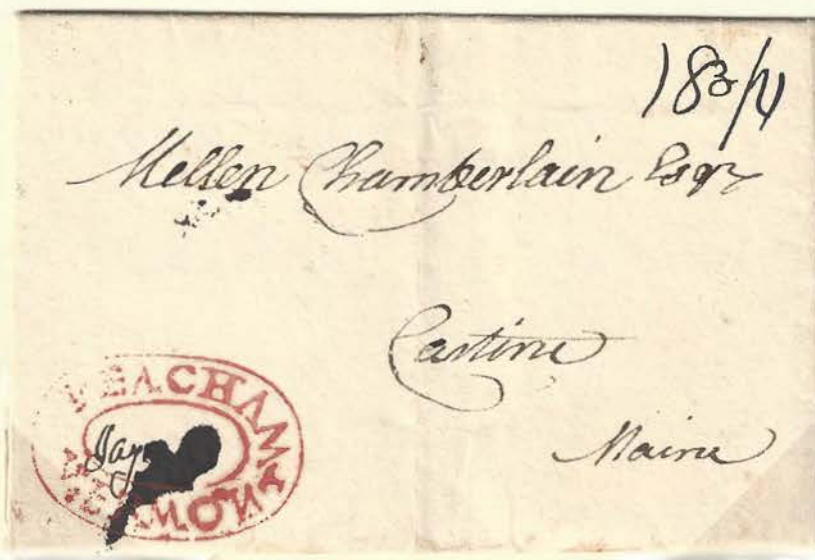 18 3/4
Mellen Chamberlain Esqr
Castine
Maine
PEACHAM
VERMONT